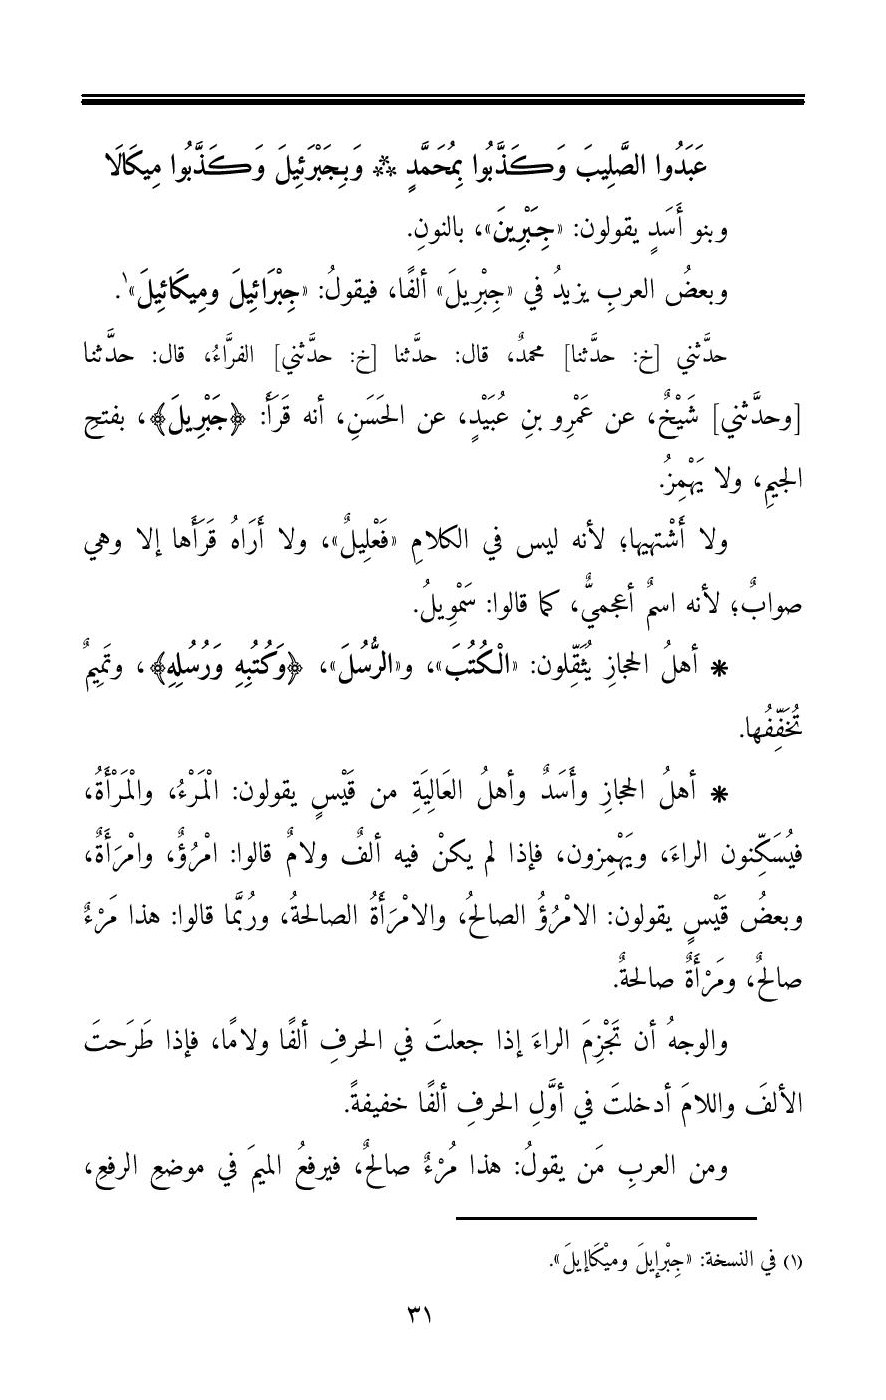 عَبَدُوا الصَّلِيبَ وَكَذَّبُوا بِمُحَمَّدٍ ** وَبِجَبْرَئِيلَ وَكَذَّبُوا مِيكَالَا
وبنو أَسَدٍ يقولون: «جِبْرِينَ»، بالنونِ.
وبعضُ العربِ يزيدُ في «جِبْرِيلَ» ألفًا، فيقولُ: «جِبْرَائِيلَ ومِيكَائِيلَ»١.
حدَّثني [خ: حدَّثنا] محمدٌ، قال: حدَّثنا [خ: حدَّثني] الفرَّاءُ، قال: حدَّثنا
[وحدَّثني] شَيْخٌ، عن عَمْرِو بنِ عُبَيْدٍ، عن الحَسَنِ، أنه قَرَأَ: ﴿جَبْرِيلَ﴾، بفتحِ
الجيمِ، ولا يَهْمِزُ.
ولا أَشْتهيها؛ لأنه ليس في الكلامِ «فَعْلِيلٌ»، ولا أَرَاهُ قَرَأَها إلا وهي
صوابٌ؛ لأنه اسمٌ أعجميٌّ، كما قالوا: سَمْوِيلُ.
* أهلُ الحجازِ يُثَقِّلون: «الْكُتُبَ»، و«الرُّسُلَ»، ﴿وَكُتُبِهِ وَرُسُلِهِ﴾، وتَمِيمٌ
تُخَفِّفُها.
* أهلُ الحجازِ وأَسَدٌ وأهلُ العَالِيَةِ من قَيْسٍ يقولون: الْمَرْءُ، والْمَرْأَةُ،
فيُسَكِّنون الراءَ، ويَهْمِزون، فإذا لم يكنْ فيه ألفٌ ولامٌ قالوا: امْرُؤٌ، وامْرَأَةٌ،
وبعضُ قَيْسٍ يقولون: الامْرُؤُ الصالحُ، والامْرَأَةُ الصالحةُ، ورُبَّما قالوا: هذا مَرْءٌ
صالحٌ، ومَرْأَةٌ صالحةٌ.
والوجهُ أن تَجْزِمَ الراءَ إذا جعلتَ في الحرفِ ألفًا ولامًا، فإذا طَرَحتَ
الألفَ واللامَ أدخلتَ في أوَّلِ الحرفِ ألفًا خفيفةً.
ومن العربِ مَن يقولُ: هذا مُرْءٌ صالحٌ، فيرفعُ الميمَ في موضعِ الرفعِ،
(١) في النسخة: «جِبْرإيلَ وميْكَاإيلَ».
٣١